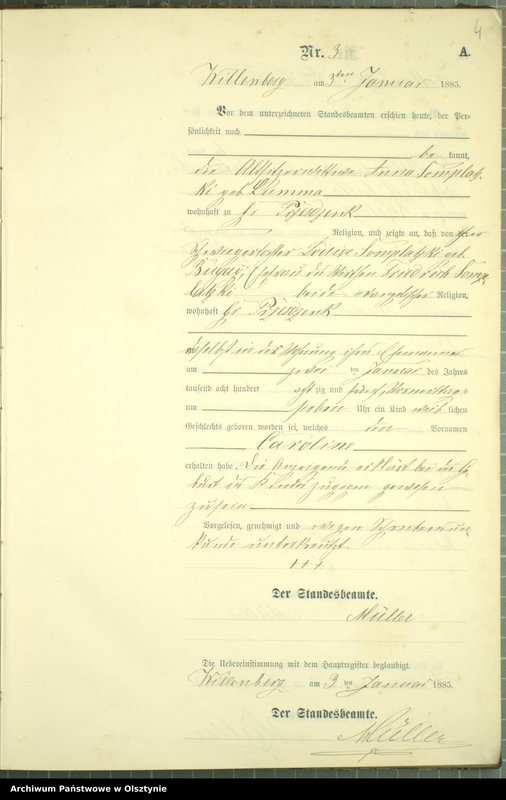 4
Nr. 3 A.
Willenberg am 3ten Januar 1885.
Vor dem unterzeichneten Standesbeamten erschien heute, der Per-
sönlichkeit nach
be kannt,
die Altsitzerwittwe Anna
geb.
wohnhaft zu
Religion, und zeigte an, daß von
Schwiegertochter Louise geb.
Ehefrau des Friedrich
beide evangelischer Religion,
wohnhaft
in der Wohnung ihres Ehemannes
am zwei ten Januar des Jahres
tausend acht hundert acht zig und fünf, Vormittags
um sieben Uhr ein Kind weib lichen
Geschlechts geboren worden sei, welches den Vornamen
Caroline
erhalten habe. Die Anzeigende erklärt bei der Ge-
burt des Kindes zugegen gewesen
zu sein
Vorgelesen, genehmigt und wegen Schreibensun-
kunde unterkreuzt.
+++
Der Standesbeamte.
Müller
Die Uebereinstimmung mit dem Hauptregister beglaubigt.
Willenberg am 3 ten Januar 1885.
Der Standesbeamte.
Müller
Archiwum Państwowe w Olsztynie